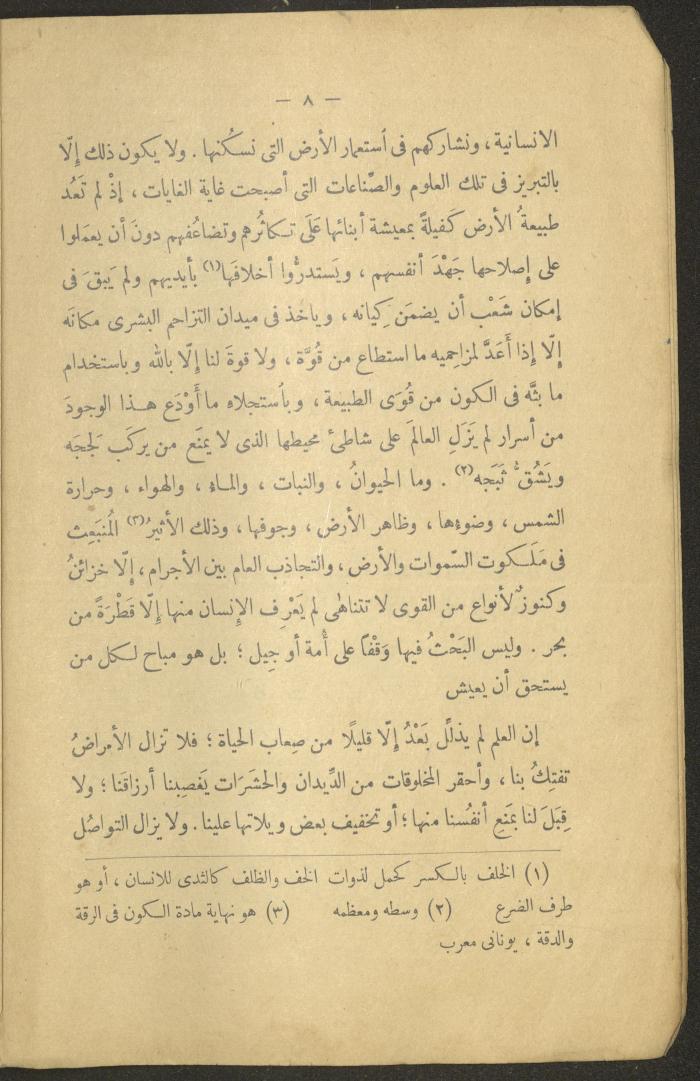 — ٨ —
الانسانية ، ونشاركهم فى ٱستعمار الأرض التى نسكُنها . ولا يكون ذلك إِلّا
بالتبريز فى تلك العلوم والصِّناعات التى أصبحت غاية الغايات ، إِذْ لم تَعُد
طبيعةُ الأرض كَفيلةً بمعيشة أبنائها عَلَى تكاثُرِهم وتضاعُفهم دونَ أن يعمَلوا
على إصلاحها جَهْدَ أنفسهم ، ويَستدرُّوا أخلافَها(١) بأيديهم ولم يَبقَ فى
إمكان شَعْب أن يضمَن كِيانه ، وياخذ فى ميدان التزاحم البشرى مكانَه
إِلّا إِذا أَعَدَّ لمزاحِميه ما استطاع من قُوَّة ، ولا قوةَ لنا إِلّا بالله وباستخدام
ما بثَّه فى الكون من قُوَى الطبيعة ، وبٱستجلاء ما أَوْدَع هذا الوجودَ
من أسرار لم يَزَلِ العالمَ على شاطئ محيطها الذى لا يمنَع من يركَب لُججَه
ويَشُق ثَبَجه(٢) . وما الحيوانُ ، والنبات ، والماء ، والهواء ، وحرارة
الشمس ، وضوءها ، وظاهر الأرض ، وجوفها ، وذلك الأثيرُ(٣) المُنبَعِث
فى مَلَكوت السّموات والأرض ، والتجاذب العام بين الأجرام ، إِلّا خزائنُ
وكنوز لأنواع من القوى لا تتناهَى لم يَعْرِف الإنسان منها إِلّا قَطْرَةً من
بحر . وليس البَحْثُ فيها وَقْفًا على أُمة أو جِيل ؛ بل هو مباح لكل من
يستحق أن يعيش
إن العلم لم يذلِّل بَعْدُ إِلّا قليلًا من صِعاب الحياة ؛ فلا تزال الأمراضُ
تفتِكُ بنا ، وأحقر المخلوقات من الدِّيدان والحشَرَات يَغصِبنا أرزاقَنا ؛ ولا
قِبَلَ لنا بمَنعِ أنفُسنا منها ؛ أو تخفيف بعض ويلاتها علينا . ولا يزال التواصُل
(١) الخلف بالكسر كحمل لذوات الخف والظلف كالثدى للانسان ، أو هو
طرف الضرع (٢) وسطه ومعظمه (٣) هو نهاية مادة الكون فى الرقة
والدقة ، يونانى معرب